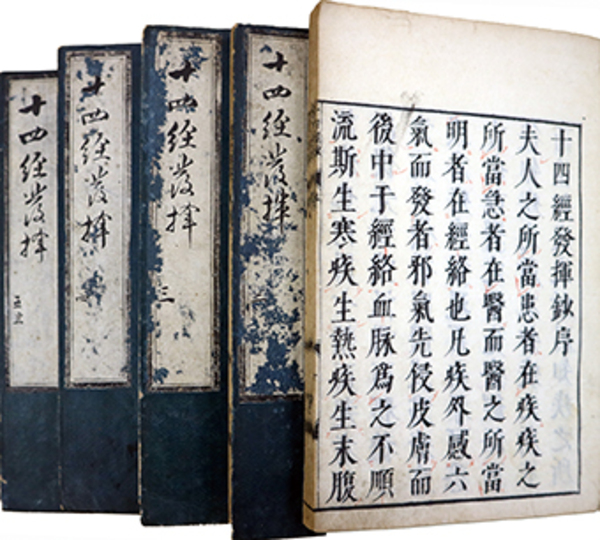 十四經發揮鈔序
夫人之所當患者在疾疾之
所當急者在醫而醫之所當
明者在經絡也凡疾外感六
氣而發者邪氣先侵皮膚而
後中于經絡血脉爲之不順
流斯生寒疾生熱疾生末腹
十四經發揮
十四經發揮
三
十四經發揮
十四經發揮